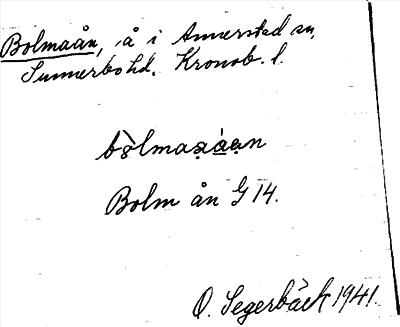 Bolmaån, å i Annerstad sn,
Sunnerbo hd. Kronob. l.
bo̥lmaà̤a̤n
Bolm ån G 14.
O. Segerbäck 1941.